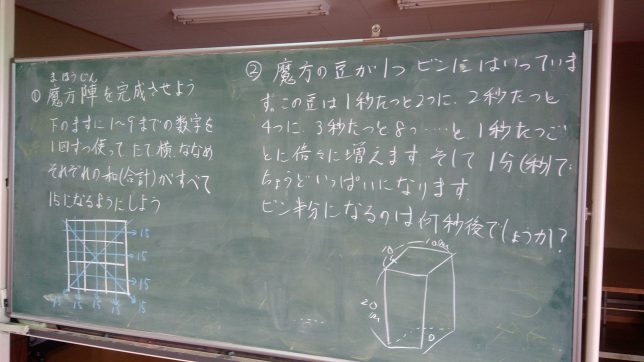 まほうじん
① 魔方陣を完成させよう
下のますに1~9までの数字を
1回ずつ使って、たて、横、ななめ
それぞれの和(合計)がすべて
15になるようにしよう
15
15
15
15 15 15 15 15
② 魔方の豆が1つ ビンに はいっていま
す。この豆は1秒たつと2つに、2秒たつと
4つに、3秒たつと8つ……と、1秒たつご
とに倍々に増えます。そして1分(秒)で
ちょうどいっぱいになります。
ビン半分になるのは何秒後でしょうか?
10cm
10
20